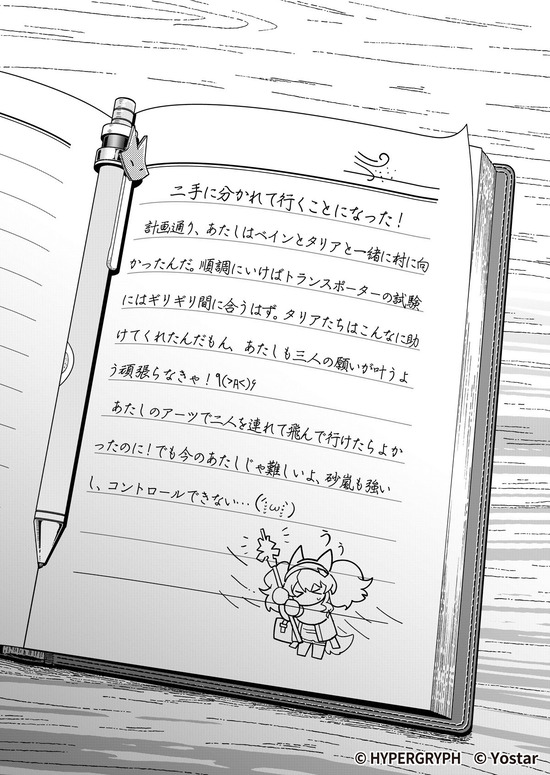 二手に分かれて行くことになった！
計画通り、あたしはペインとタリアと一緒に村に向
かったんだ。順調にいけばトランスポーターの試験
にはギリギリ間に合うはず。タリアたちはこんなに助
けてくれたんだもん、あたしも三人の願いが叶うよ
う頑張らなきゃ！٩(>д<)۶
あたしのアーツで二人を連れて飛んで行けたらよか
ったのに！でも今のあたしじゃ難しいよ、砂嵐も強い
し、コントロールできない…(´;ω;`)
うぅ
© HYPERGRYPH © Yostar